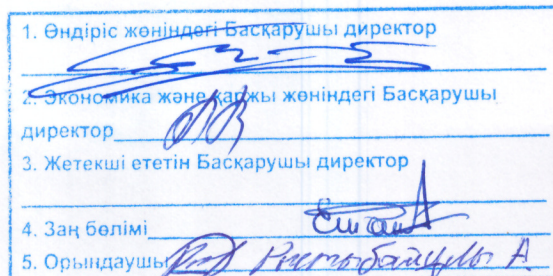 1. Өндіріс жөніндегі Басқарушы директор
2. Экономика және қаржы жөніндегі Басқарушы
директор
3. Жетекші ететін Басқарушы директор
4. Заң бөлімі
5. Орындаушы